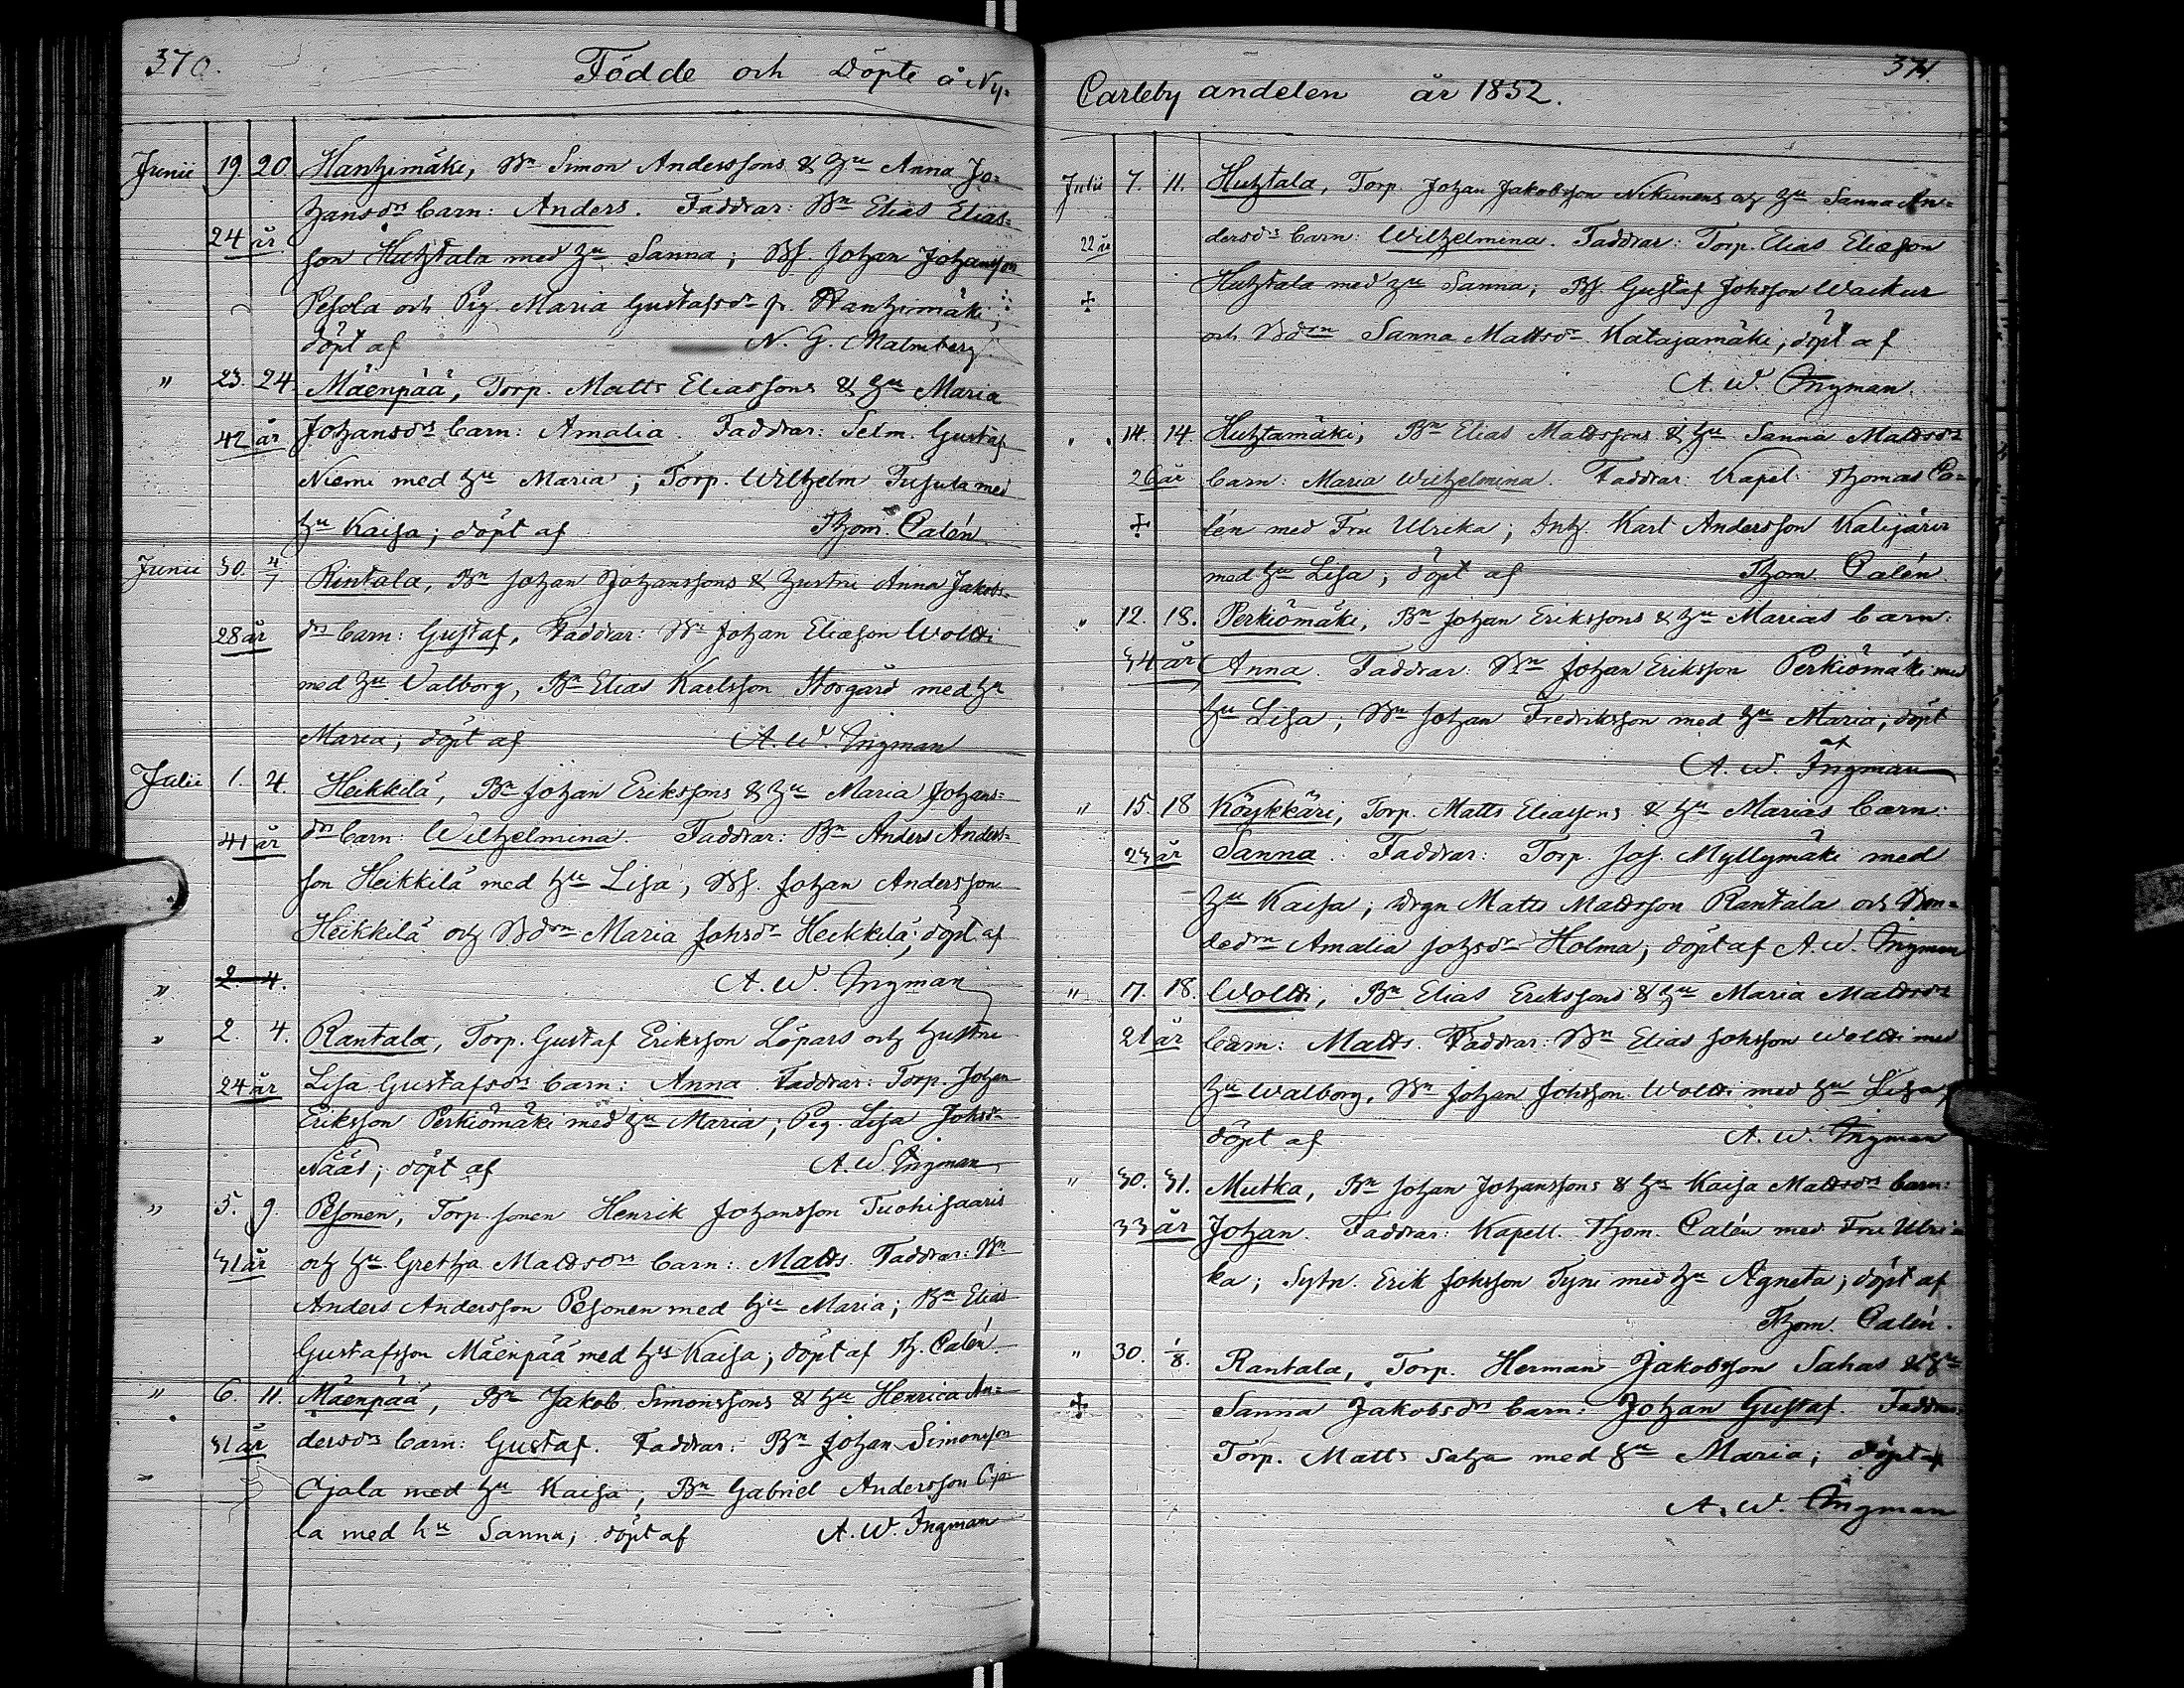 370.
Födde och Döpte å Ny-
Junii 19. 20 Hanhimäki, Bn Simon Anderssons & hu Anna Jo-
hansdrs barn: Anders. Faddrar: Bn Elias Elias-
24 år
son Huhtala med hu Sanna; BS. Johan Johansson
Pesola och Pig. Maria Gustafsdr fr. Hanhimäki;
döpt af N. G. Malmberg
" 23. 24. Mäenpää, Torp. Matts Eliassons & hu Maria
42 år Johansdrs barn: Amalia. Faddrar: Selm. Gustaf
Niemi med hu Maria; Torp. Wilhelm Tusula med
hu Kaisa; döpt af Thom. Calén
Junii 30. 4/7 Rintala, Bn Johan Johanssons & hustru Anna Jakobs-
28 år drs barn: Gustaf, Faddrar: Bn Johan Eliasson Woltti
med hu Valborg, Bn Elias Karlsson Storgård med hu
Maria; döpt af A. W. Ingman
Julii 1. 4. Heikkilä, Bn Johan Erikssons & hu Maria Johans-
41 år drs barn: Wilhelmina. Faddrar: Bn Anders Anders-
son Heikkilä med hu Lisa, BS. Johan Andersson
Heikkilä och Bdrn Maria Johsdr Heikkilä; döpt af
" 2. 4. A. W. Ingman
" 2. 4. Rantala, Torp. Gustaf Eriksson Löpars och hustru
24 år Lisa Gustafsdrs barn: Anna. Faddrar: Torp. Johan
Eriksson Perkiömäki med hu Maria; Pig. Lisa Johsdr
Nääs; döpt af A. W. Ingman
" 5. 9. Pesonen, Torp. sonen Henrik Johansson Tuohisaaris
31 år och hu Gretha Mattsdrs barn: Matts. Faddrar: Bn
Anders Andersson Pesonen med hu Maria; Bn Elias
Gustafsson Mäenpää med hu Kaisa; döpt af Th. Calén.
" 6. 11. Mäenpää, Bn Jakob Simonssons & hu Henrica An-
31 år dersdrs barn: Gustaf. Faddrar: Bn Johan Simonsson
" Ojala med hu Kaisa; Bn Gabriel Andersson Oja-
la med hu Sanna; döpt af A. W. Ingman
371.
Carleby andelen år 1852.
Julii 7. 11. Huhtala, Torp. Johan Jakobsson Nikunens och hu Sanna An-
22 år dersdrs barn: Wilhelmina. Faddrar: Torp. Elias Eliasson
Huhtala med hu Sanna; BS. Gustaf Johsson Waekur
och Bdrn Sanna Mattsdr Katajamäki; döpt af
A. W. Ingman.
" 14. 14. Huhtamäki, Bn Elias Mattssons & hu Sanna Mattsdrs
26 år barn: Maria Wilhelmina. Faddrar: Kapel. Thomas Ca-
lén med Fru Ulrika; Inh. Karl Andersson Kalijärvi
med hu Lisa; döpt af Thom. Calén.
" 12. 18. Perkiömäki, Bn Johan Erikssons & hu Marias barn:
34 år Anna. Faddrar: Bn Johan Eriksson Perkiömäki med
hu Lisa; Bn Johan Fredriksson med hu Maria, döpt
af
A. W. Ingman
" 15. 18 Köykkäri, Torp. Matts Eliassons & hu Marias barn:
23 år Sanna. Faddrar: Torp. Jos. Myllymäki med
hu Kaisa; Drgn Matts Mattsson Rantala och Bon-
dedrn Amalia Johsdr Holma; döpt af A. W. Ingman
" 17. 18. Woltti, Bn Elias Erikssons & hu Maria Mattsdrs
21 år barn: Matts. Faddrar: Bn Elias Johsson Woltti med
hu Walborg, Bn Johan Johsson Woltti med hu Lisa;
döpt af A. W. Ingman
" 30. 31. Mutka, Bn Johan Johanssons & hu Kaisa Mattsdrs barn:
33 år Johan. Faddrar: Kapell. Thom. Calén med Fru Ulri-
ka; Sytn. Erik Johsson Tyni med hu Agneta; döpt af
Thom. Calén.
" 30. 1/8. Rantala, Torp. Herman Jakobsson Sahas & hu
Sanna Jakobsdrs barn: Johan Gustaf. Faddrar:
Torp. Matts Saha med hu Maria; döpt af
A. W. Ingman